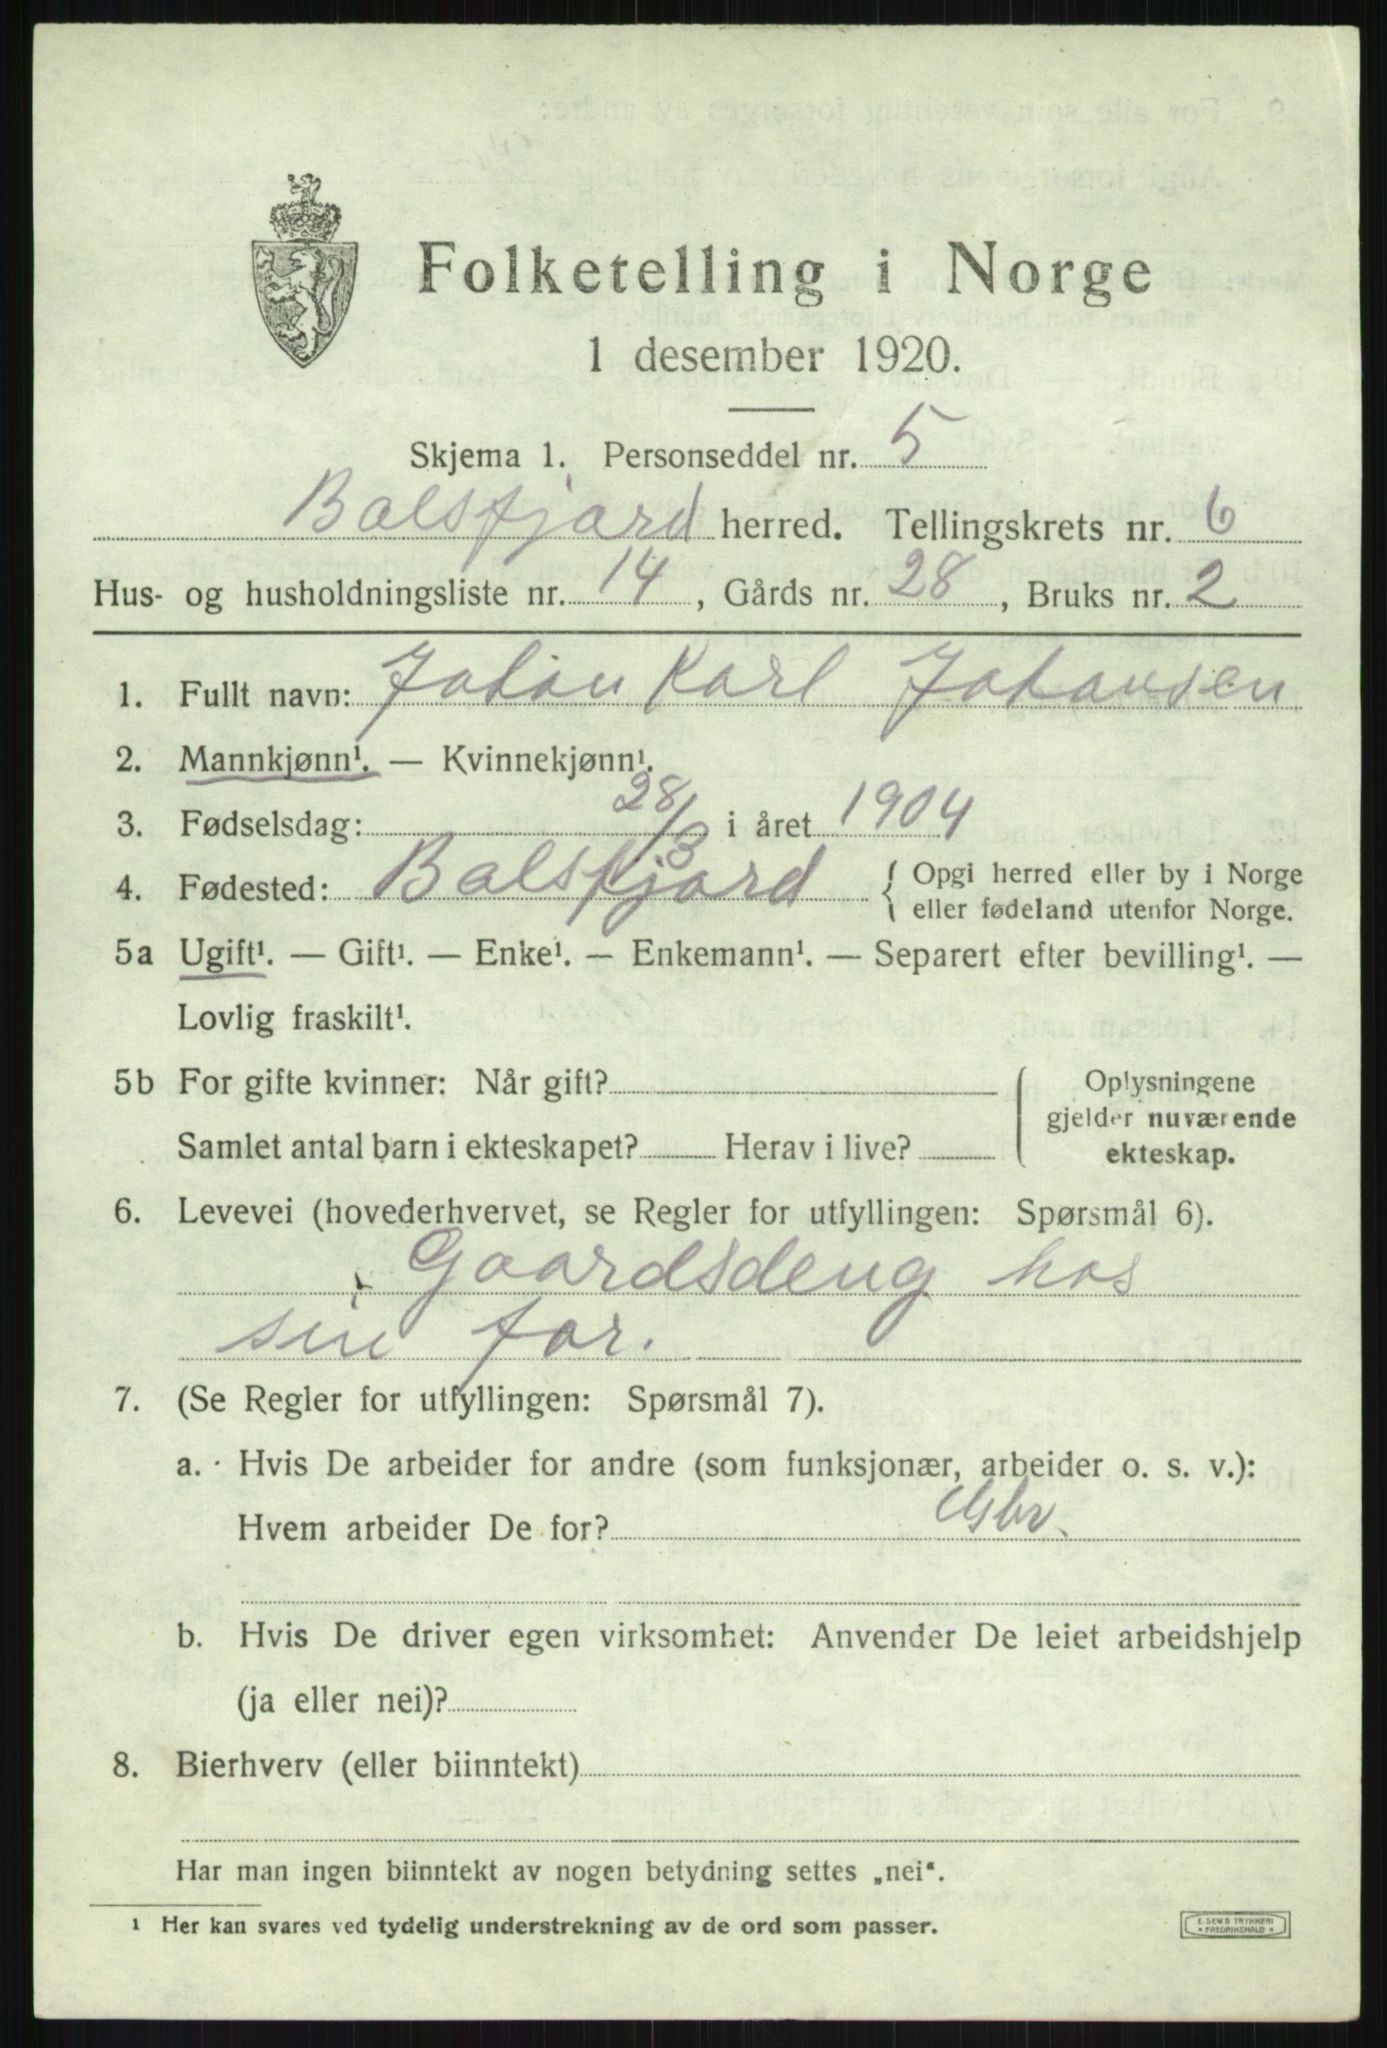 Folketelling i Norge
1 desember 1920.
Skjema 1. Personseddel nr. 5
Balsfjord herred. Tellingskrets nr. 6
Hus- og husholdningsliste nr. 14, Gårds nr. 28, Bruks nr. 2
1. Fullt navn: Johan Karl Johansen
2. Mannkjønn¹. — Kvinnekjønn¹.
3. Fødselsdag: 28/3 i året 1904
4. Fødested: Balsfjord { Opgi herred eller by i Norge
eller fødeland utenfor Norge.
5a Ugift¹. — Gift¹. — Enke¹. — Enkemann¹. — Separert efter bevilling¹. —
Lovlig fraskilt¹.
5b For gifte kvinner: Når gift?
Samlet antal barn i ekteskapet? Herav i live?
Oplysningene
gjelder nuværende
ekteskap.
6. Levevei (hovederhvervet, se Regler for utfyllingen: Spørsmål 6).
Gaardsdeng hos
sin far.
7. (Se Regler for utfyllingen: Spørsmål 7).
a. Hvis De arbeider for andre (som funksjonær, arbeider o. s. v.):
Hvem arbeider De for? Gbr.
b. Hvis De driver egen virksomhet: Anvender De leiet arbeidshjelp
(ja eller nei)?
8. Bierhverv (eller biinntekt)
Har man ingen biinntekt av nogen betydning settes „nei“.
¹ Her kan svares ved tydelig understrekning av de ord som passer.
E. SEM'S TRYKKERI
• FREDRIKSHALD •